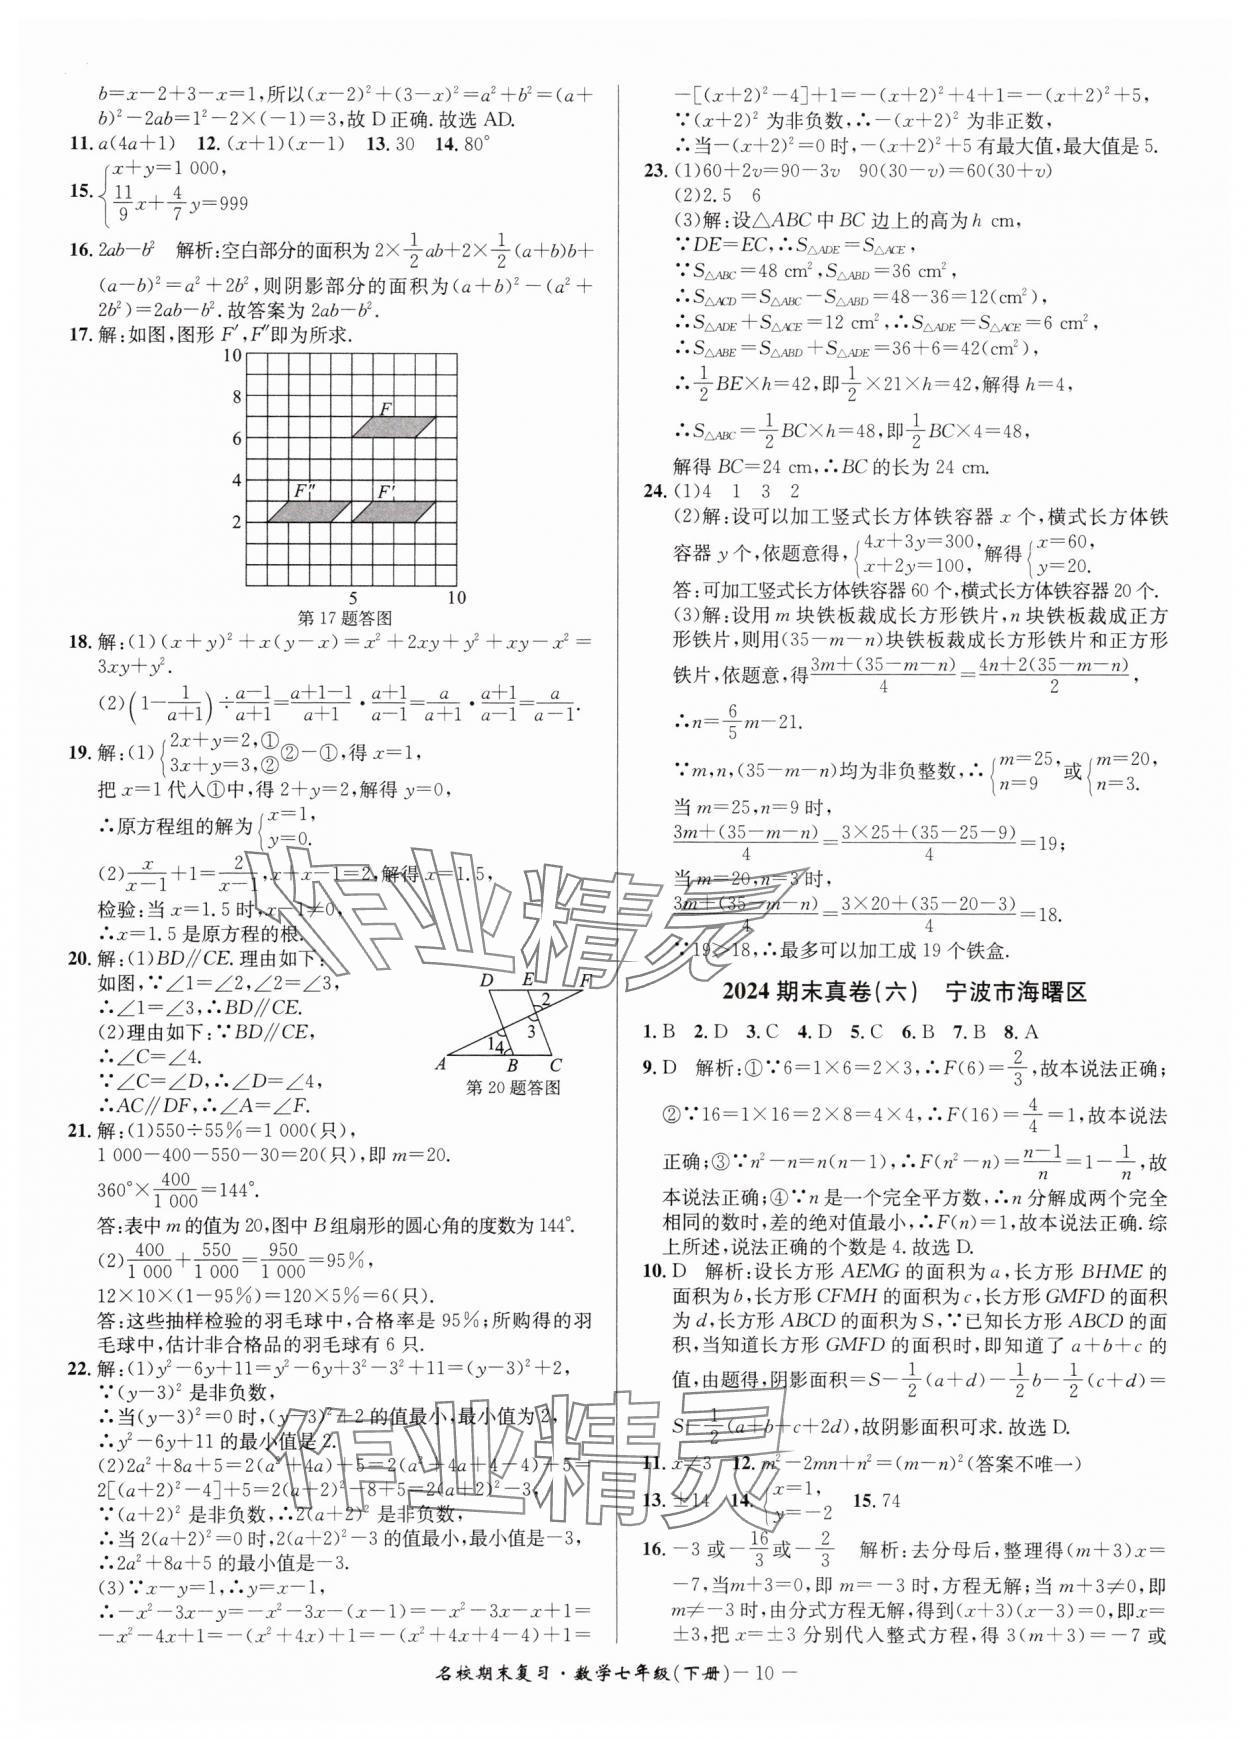 b=x-2+3-x=1,所以(x-2)²+(3-x)²=a²+b²=(a+
b)²-2ab=1²-2×(-1)=3,故D正确.故选AD.
11. a(4a+1) 12. (x+1)(x-1) 13. 30 14. 80°
15. {x+y=1 000,
11/9 x+4/7 y=999
16. 2ab-b² 解析:空白部分的面积为2×1/2 ab+2×1/2(a+b)b+
(a-b)²=a²+2b²,则阴影部分的面积为(a+b)²-(a²+
2b²)=2ab-b².故答案为2ab-b².
17. 解:如图,图形F′,F″即为所求.
10
8
F
6
4
F″ F′
2
5 10
第17题答图
18. 解:(1)(x+y)²+x(y-x)=x²+2xy+y²+xy-x²=
3xy+y².
(2)(1-1/(a+1))÷(a-1)/(a+1)=(a+1-1)/(a+1)·(a+1)/(a-1)=a/(a+1)·(a+1)/(a-1)=a/(a-1).
19. 解:(1){2x+y=2,① 3x+y=3,② ②-①,得x=1,
把x=1代入①中,得2+y=2,解得y=0,
∴原方程组的解为{x=1, y=0.
(2)x/(x-1)+1=2/(x-1),x+x-1=2,解得x=1.5,
检验:当x=1.5时,x-1≠0,
∴x=1.5是原方程的根.
20. 解:(1)BD∥CE.理由如下:
如图,∵∠1=∠2,∠2=∠3,
∴∠1=∠3,∴BD∥CE.
(2)理由如下:∵BD∥CE,
∴∠C=∠4.
∵∠C=∠D,∴∠D=∠4,
∴AC∥DF,∴∠A=∠F.
D E F
2
1 3
4
A B C
第20题答图
21. 解:(1)550÷55%=1 000(只),
1 000-400-550-30=20(只),即m=20.
360°×400/1 000=144°.
答:表中m的值为20,图中B组扇形的圆心角的度数为144°.
(2)400/1 000+550/1 000=950/1 000=95%,
12×10×(1-95%)=120×5%=6(只).
答:这些抽样检验的羽毛球中,合格率是95%;所购得的羽
毛球中,估计非合格品的羽毛球有6只.
22. 解:(1)y²-6y+11=y²-6y+3²-3²+11=(y-3)²+2,
∵(y-3)²是非负数,
∴当(y-3)²=0时,(y-3)²+2的值最小,最小值为2,
∴y²-6y+11的最小值是2.
(2)2a²+8a+5=2(a²+4a)+5=2(a²+4a+4-4)+5=
2[(a+2)²-4]+5=2(a+2)²-8+5=2(a+2)²-3,
∵(a+2)²是非负数,∴2(a+2)²是非负数,
∴当2(a+2)²=0时,2(a+2)²-3的值最小,最小值是-3,
∴2a²+8a+5的最小值是-3.
(3)∵x-y=1,∴y=x-1,
∴-x²-3x-y=-x²-3x-(x-1)=-x²-3x-x+1=
-x²-4x+1=-(x²+4x)+1=-(x²+4x+4-4)+1=
-[(x+2)²-4]+1=-(x+2)²+4+1=-(x+2)²+5,
∵(x+2)²为非负数,∴-(x+2)²为非正数,
∴当-(x+2)²=0时,-(x+2)²+5有最大值,最大值是5.
23. (1)60+2v=90-3v 90(30-v)=60(30+v)
(2)2.5 6
(3)解:设△ABC中BC边上的高为h cm,
∵DE=EC,∴S△ADE=S△ACE,
∵S△ABC=48 cm²,S△ABD=36 cm²,
∴S△ACD=S△ABC-S△ABD=48-36=12(cm²),
∴S△ADE+S△ACE=12 cm²,∴S△ADE=S△ACE=6 cm²,
∴S△ABE=S△ABD+S△ADE=36+6=42(cm²),
∴1/2 BE×h=42,即1/2×21×h=42,解得h=4,
∴S△ABC=1/2 BC×h=48,即1/2 BC×4=48,
解得BC=24 cm,∴BC的长为24 cm.
24. (1)4 1 3 2
(2)解:设可以加工竖式长方体铁容器x个,横式长方体铁
容器y个,依题意得,{4x+3y=300, x+2y=100, 解得{x=60, y=20.
答:可加工竖式长方体铁容器60个,横式长方体铁容器20个.
(3)解:设用m块铁板裁成长方形铁片,n块铁板裁成正方
形铁片,则用(35-m-n)块铁板裁成长方形铁片和正方形
铁片,依题意,得(3m+(35-m-n))/4=(4n+2(35-m-n))/2,
∴n=6/5 m-21.
∵m,n,(35-m-n)均为非负整数,∴{m=25, n=9 或{m=20, n=3.
当m=25,n=9时,
(3m+(35-m-n))/4=(3×25+(35-25-9))/4=19;
当m=20,n=3时,
(3m+(35-m-n))/4=(3×20+(35-20-3))/4=18.
∵19>18,∴最多可以加工成19个铁盒.
2024期末真卷(六) 宁波市海曙区
1. B 2. D 3. C 4. D 5. C 6. B 7. B 8. A
9. D 解析:①∵6=1×6=2×3,∴F(6)=2/3,故本说法正确;
②∵16=1×16=2×8=4×4,∴F(16)=4/4=1,故本说法
正确;③∵n²-n=n(n-1),∴F(n²-n)=(n-1)/n=1-1/n,故
本说法正确;④∵n是一个完全平方数,∴n分解成两个完全
相同的数时,差的绝对值最小,∴F(n)=1,故本说法正确.综
上所述,说法正确的个数是4.故选D.
10. D 解析:设长方形AEMG的面积为a,长方形BHME的
面积为b,长方形CFMH的面积为c,长方形GMFD的面积
为d,长方形ABCD的面积为S,∵已知长方形ABCD的面
积,当知道长方形GMFD的面积时,即知道了a+b+c的
值,由题得,阴影面积=S-1/2(a+d)-1/2 b-1/2(c+d)=
S-1/2(a+b+c+2d),故阴影面积可求.故选D.
11. x≠3 12. m²-2mn+n²=(m-n)²(答案不唯一)
13. ±14 14. {x=1, y=-2 15. 74
16. -3或-16/3或-2/3 解析:去分母后,整理得(m+3)x=
-7,当m+3=0,即m=-3时,方程无解;当m+3≠0,即
m≠-3时,由分式方程无解,得到(x+3)(x-3)=0,即x=
±3,把x=±3分别代入整式方程,得3(m+3)=-7或
名校期末复习·数学七年级(下册)-10-
作业精灵
作业精灵